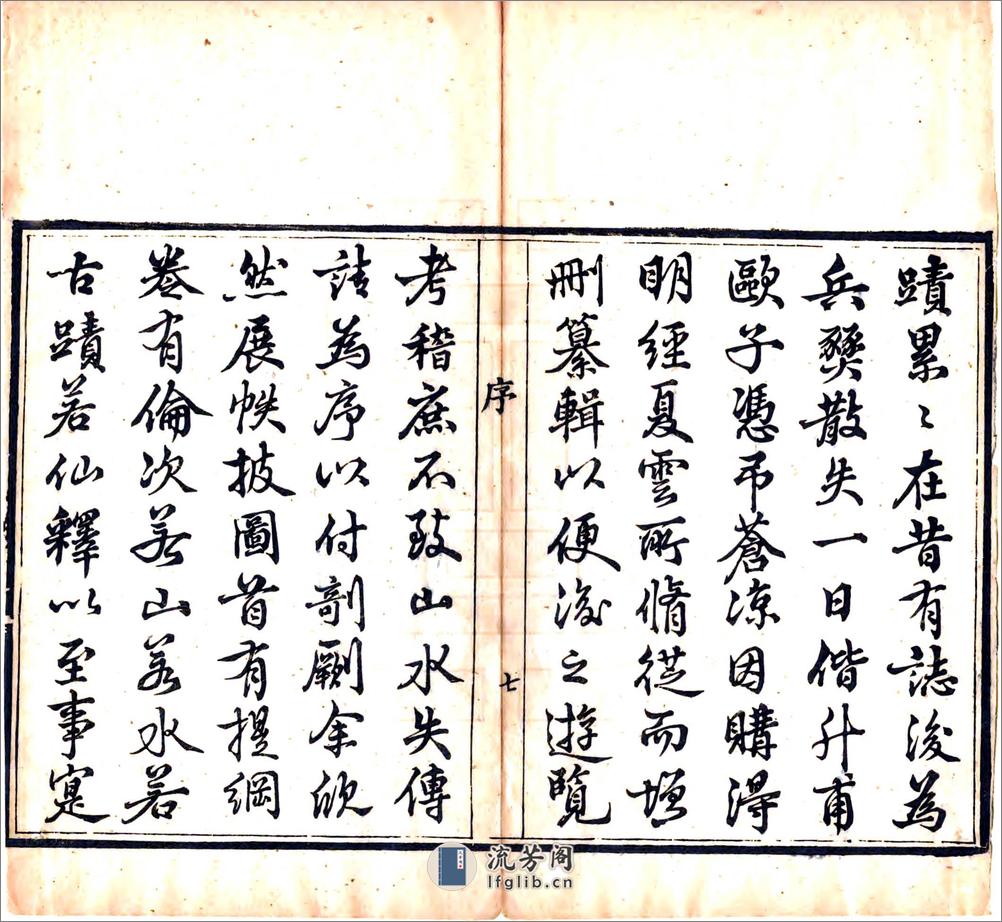 蹟累〻在昔有誌後為
兵燹散失一日偕升甫
歐子憑弔蒼涼因購得
明經夏雲所脩從而增
刪纂輯以便後之遊覽
序
七
考稽庶不致山水失傳
請為序以付剞劂余欣
然展帙披圖首有提綱
卷有倫次若山若水若
古蹟若仙釋以至事寔
流芳阁
lfglib.cn